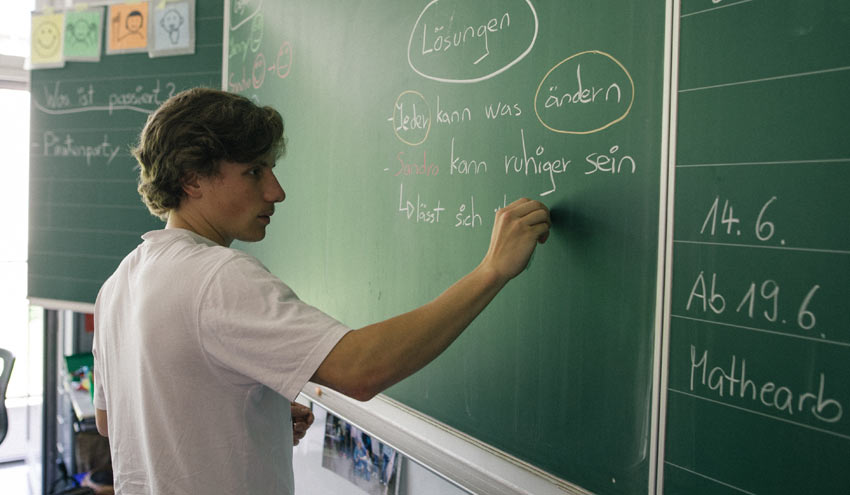 Was ist passiert?
- Piratenparty
Sandra
Lösungen
- Jeder kann was ändern
- Sandra kann ruhiger sein
↳ lässt sich
14. 6.
Ab 19. 6.
Mathearb